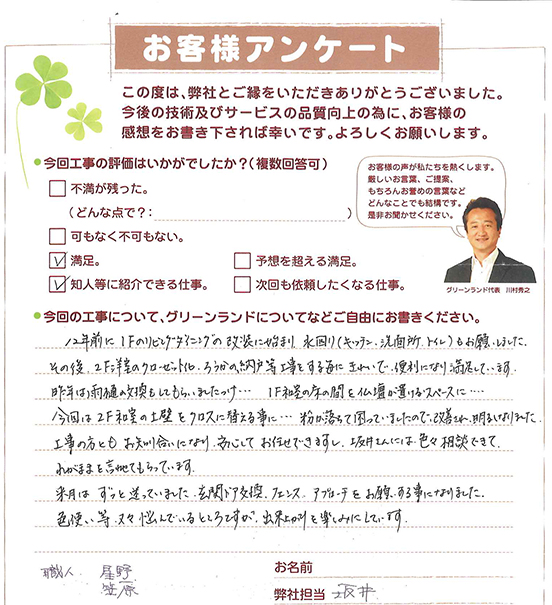 お客様アンケート
この度は、弊社とご縁をいただきありがとうございました。
今後の技術及びサービスの品質向上の為に、お客様の
感想をお書き下されば幸いです。よろしくお願いします。
今回工事の評価はいかがでしたか?(複数回答可)
不満が残った。
(どんな点で?: )
可もなく不可もない。
満足。
予想を超える満足。
知人等に紹介できる仕事。
次回も依頼したくなる仕事。
お客様の声が私たちを熱くします。
厳しいお言葉、ご提案、
もちろんお誉めの言葉など
どんなことでも結構です。
是非お聞かせください。
グリーンランド代表 川村秀之
今回の工事について、グリーンランドについてなどご自由にお書きください。
12年前に1Fのリビングダイニングの改装に始まり、水回り(キッチン、洗面所、トイレ)もお願いしました。
その後、2F洋室のクローゼット化、ろうかの納戸等工事をする毎にきれいで、便利になり満足しています。
昨年は雨樋の交換もしてもらいましたっけ… 1F和室の床の間を仏壇が置けるスペースに…
今回は2F和室の土壁をクロスに替える事に… 粉が落ちて困っていましたので、改善され、明るくなりました。
工事の方ともお知り合いになり、安心してお任せできますし、坂井さんには色々相談できて、
わがままを言わせてもらっています。
来月はずっと迷っていました、玄関ドア交換、フェンス、アプローチをお願いする事になりました。
色使い等、又々悩んでいるところですが、出来上がりを楽しみにしています。
職人 星野
笠原
お名前
弊社担当 坂井